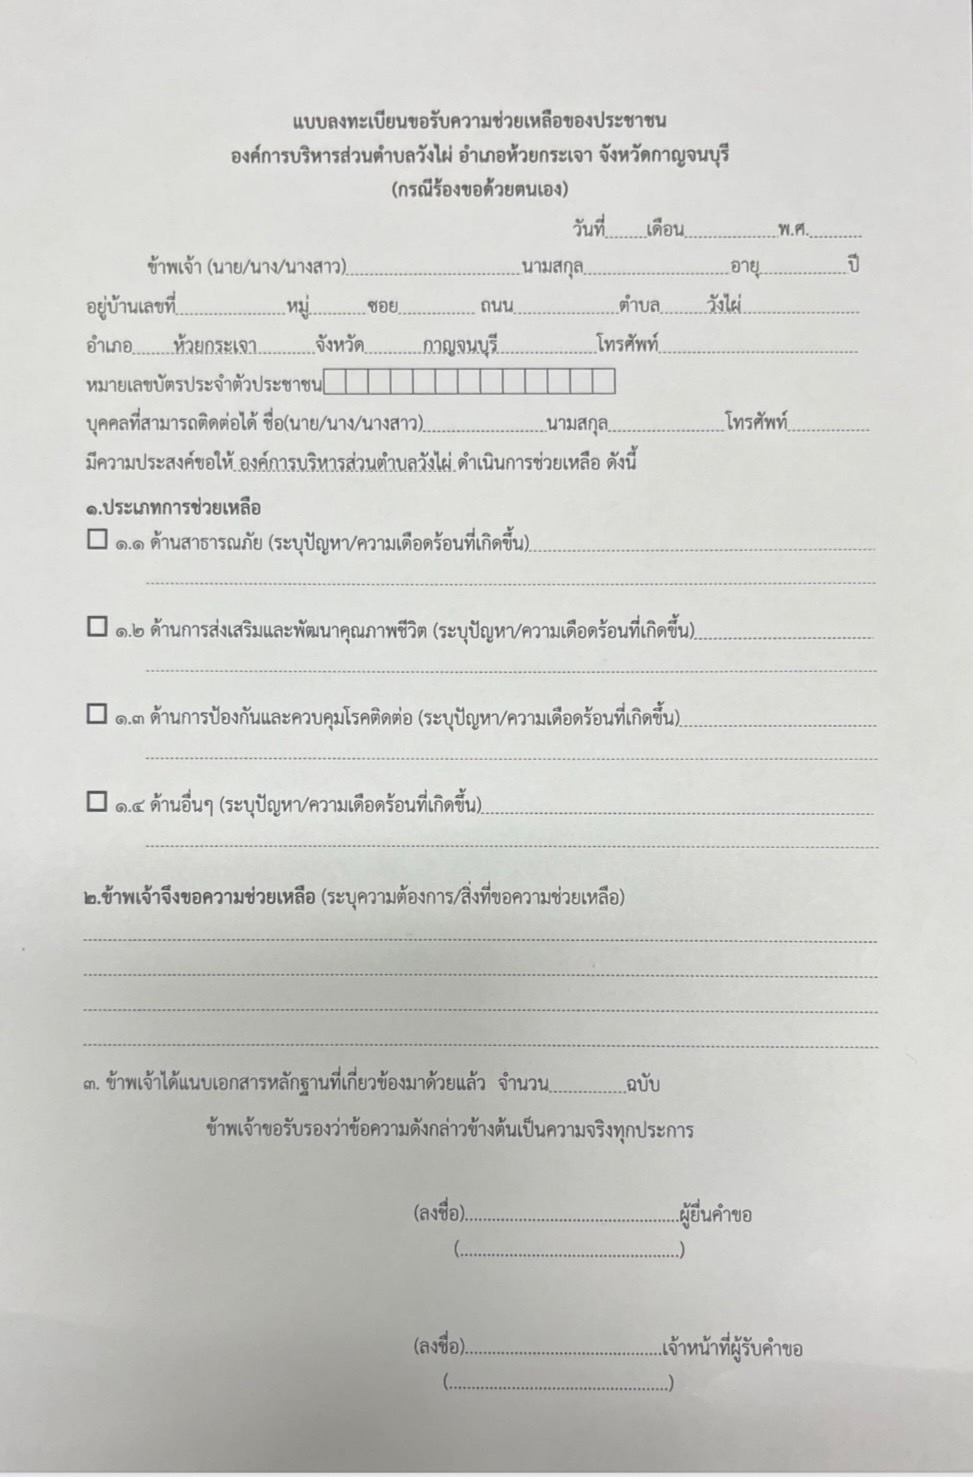 แบบลงทะเบียนขอรับความช่วยเหลือของประชาชน
องค์การบริหารส่วนตำบลวังไผ่ อำเภอห้วยกระเจา จังหวัดกาญจนบุรี
(กรณีร้องขอด้วยตนเอง)
วันที่.......เดือน................พ.ศ.........
ข้าพเจ้า (นาย/นาง/นางสาว)..............................นามสกุล.........................อายุ...............ปี
อยู่บ้านเลขที่...................หมู่..........ซอย............. ถนน..................ตำบล........วังไผ่....................
อำเภอ.......ห้วยกระเจา..........จังหวัด..........กาญจนบุรี.................โทรศัพท์..................................
หมายเลขบัตรประจำตัวประชาชน
บุคคลที่สามารถติดต่อได้ ชื่อ(นาย/นาง/นางสาว).....................นามสกุล....................โทรศัพท์..............
มีความประสงค์ขอให้ องค์การบริหารส่วนตำบลวังไผ่ ดำเนินการช่วยเหลือ ดังนี้
๑.ประเภทการช่วยเหลือ
☐ ๑.๑ ด้านสาธารณภัย (ระบุปัญหา/ความเดือดร้อนที่เกิดขึ้น)............................................................
☐ ๑.๒ ด้านการส่งเสริมและพัฒนาคุณภาพชีวิต (ระบุปัญหา/ความเดือดร้อนที่เกิดขึ้น)...............................
☐ ๑.๓ ด้านการป้องกันและควบคุมโรคติดต่อ (ระบุปัญหา/ความเดือดร้อนที่เกิดขึ้น).................................
☐ ๑.๔ ด้านอื่นๆ (ระบุปัญหา/ความเดือดร้อนที่เกิดขึ้น)....................................................................
๒.ข้าพเจ้าจึงขอความช่วยเหลือ (ระบุความต้องการ/สิ่งที่ขอความช่วยเหลือ)
๓. ข้าพเจ้าได้แนบเอกสารหลักฐานที่เกี่ยวข้องมาด้วยแล้ว จำนวน.............ฉบับ
ข้าพเจ้าขอรับรองว่าข้อความดังกล่าวข้างต้นเป็นความจริงทุกประการ
(ลงชื่อ)..............................................ผู้ยื่นคำขอ
(...............................................)
(ลงชื่อ)..........................................เจ้าหน้าที่ผู้รับคำขอ
(...............................................)